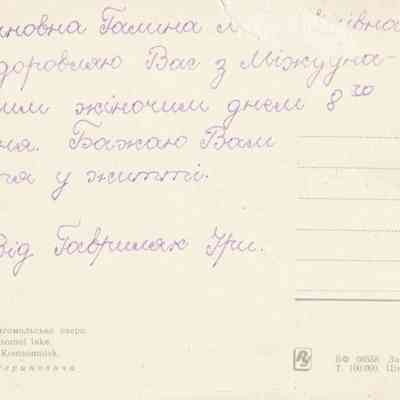 новна Галина
доровляю Вас з Міжуна-
им жіночим днем 8го
ня. Бажаю Вам
тя у житті.
Від Гавриляк Іри.
омольське озеро.
somol lake.
Komsomolsk.
БФ 06558 За
Т. 100.000. Ці